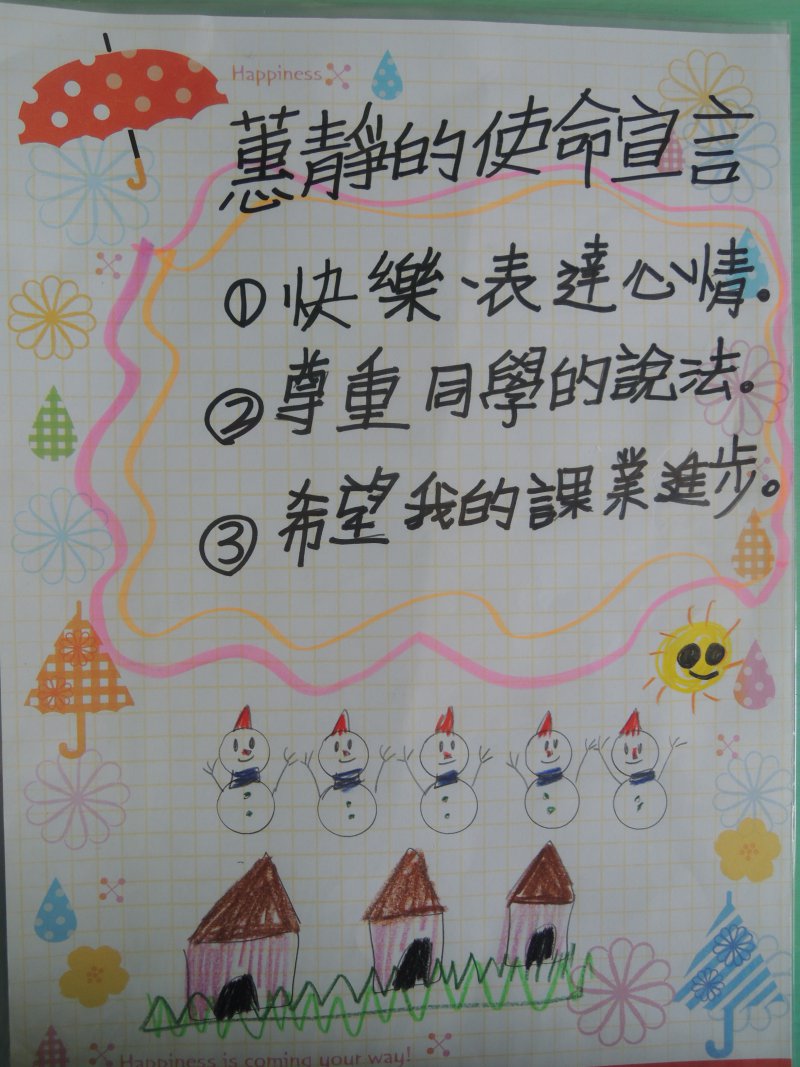 Happiness
蕙靜的使命宣言
①快樂、表達心情。
②尊重同學的說法。
③希望我的課業進步。
Happiness is coming your way!